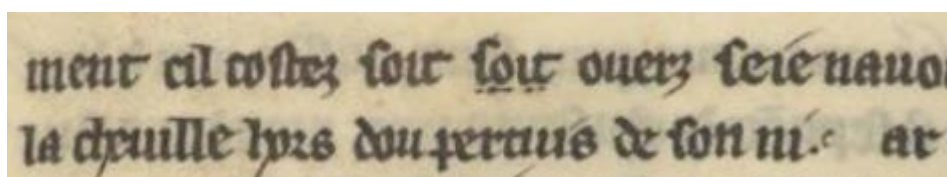 ment cil costez soit soit ouerz se ie nauo
la cheuille hors dou pertuis de son ni. ar